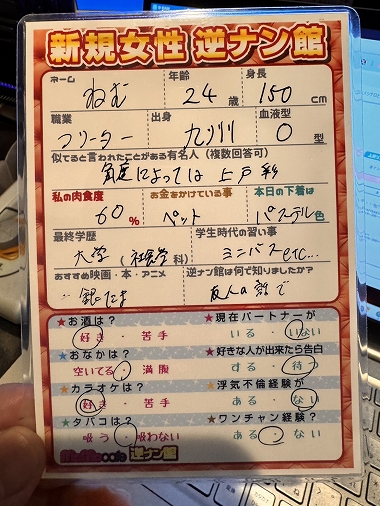 新規女性 逆ナン館
ネーム 年齢 身長
ねむ 24歳 150cm
職業 出身 血液型
フリーター 九州 O型
似てると言われたことがある有名人（複数回答可）
角度によっては上戸彩
私の肉食度 お金をかけている事 本日の下着は
60% ペット パステル色
最終学歴 学生時代の習い事
大学（社会学科） ミニバスetc...
おすすめ映画・本・アニメ 逆ナン館は何で知りましたか?
銀たま 友人の影で
★お酒は? ★現在パートナーが
好き・苦手 いる・いない
★おなかは? ★好きな人が出来たら告白
空いてる・満腹 する・待つ
★カラオケは? ★浮気不倫経験が
好き・苦手 ある・ない
★タバコは? ★ワンチャン経験?
吸う・吸わない ある・ない
cafe 逆ナン館